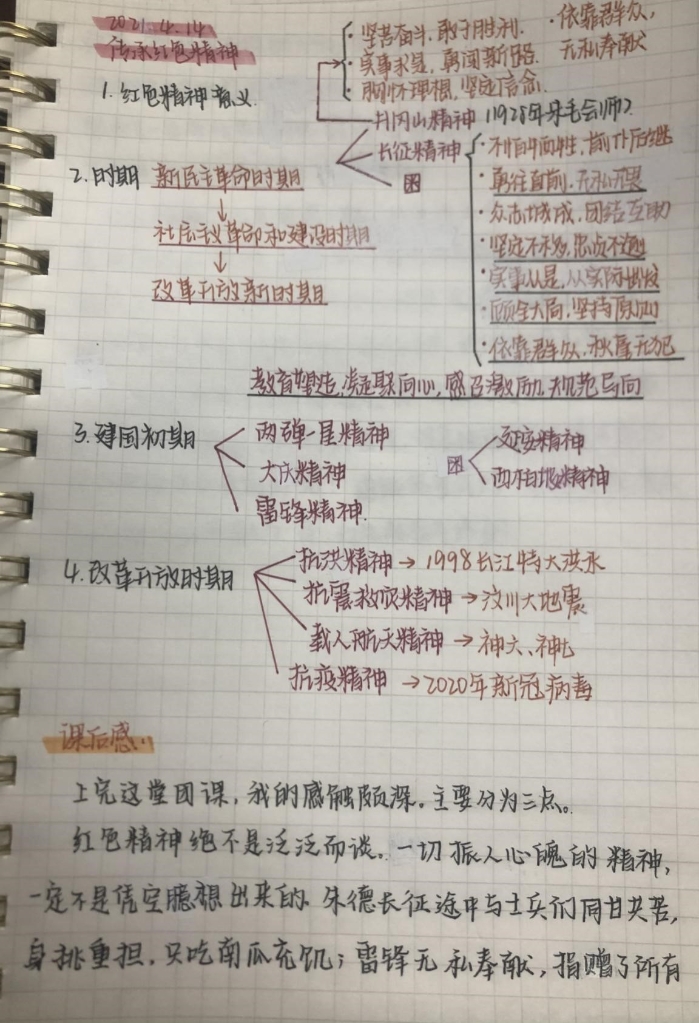 2021.4.14
传承红色精神
1.红色精神意义
· 坚苦奋斗,敢于胜利. · 依靠群众,
· 实事求是,勇闯新路. 无私奉献
· 胸怀理想,坚定信念.
井冈山精神 (1928年朱毛会师)
长征精神
团
· 不怕牺牲,前仆后继
· 勇往直前,无私无畏
· 众志成城,团结互助
· 坚定不移,忠贞不渝
· 实事从是,从实际出发
· 顾全大局,坚持原则
· 依靠群众,秋毫无犯
2.时期 新民主革命时期
↓
社会主义革命和建设时期
↓
改革开放新时期
教育塑造,凝聚同心,感召激励,规范导向
3.建国初期
两弹一星精神
大庆精神
雷锋精神.
团
延安精神
西柏坡精神
4.改革开放时期
抗洪精神→1998长江特大洪水
抗震救灾精神→汶川大地震
载人航天精神→神六、神七
抗疫精神→2020年新冠病毒
课后感:
上完这堂团课,我的感触颇深。主要分为三点。
红色精神绝不是泛泛而谈。一切振人心魄的精神,
一定不是凭空臆想出来的.朱德长征途中与士兵们同甘共苦,
身挑重担,只吃南瓜充饥;雷锋无私奉献,捐赠了所有